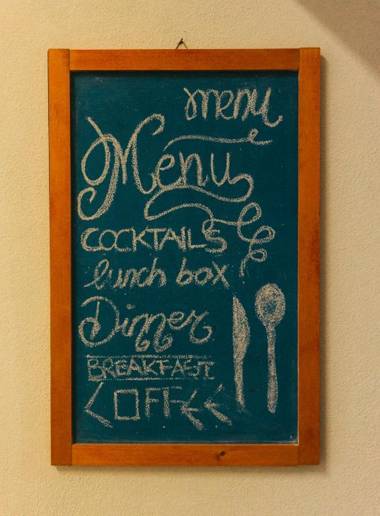 menu
Menu
COCKTAILS
lunch box
Dinner
BREAKFAST
COFFEE